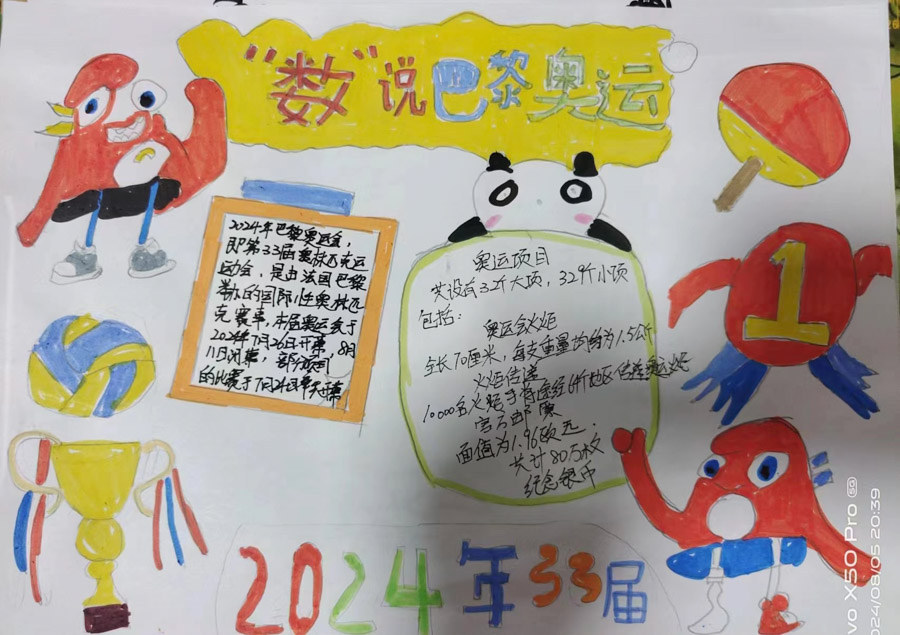 "数"说巴黎奥运
2024年巴黎奥运会，
即第33届奥林匹克运
动会，是由法国巴黎
举办的国际性奥林匹
克赛事，本届奥运会于
2024年7月26日开幕，8月
11日闭幕，部分项目
的比赛于7月24日率先开赛
奥运项目
共设有32个大项，329个小项
包括：
奥运会火炬
全长70厘米，每支重量均约为1.5公斤
火炬传递
10000名火炬手将途经 地区传递奥运火炬
官方邮票
面值为1.96欧元．
共计80万枚
纪念银币
1
2024年33届
vo X50 Pro 5G
024/08/05 20:39